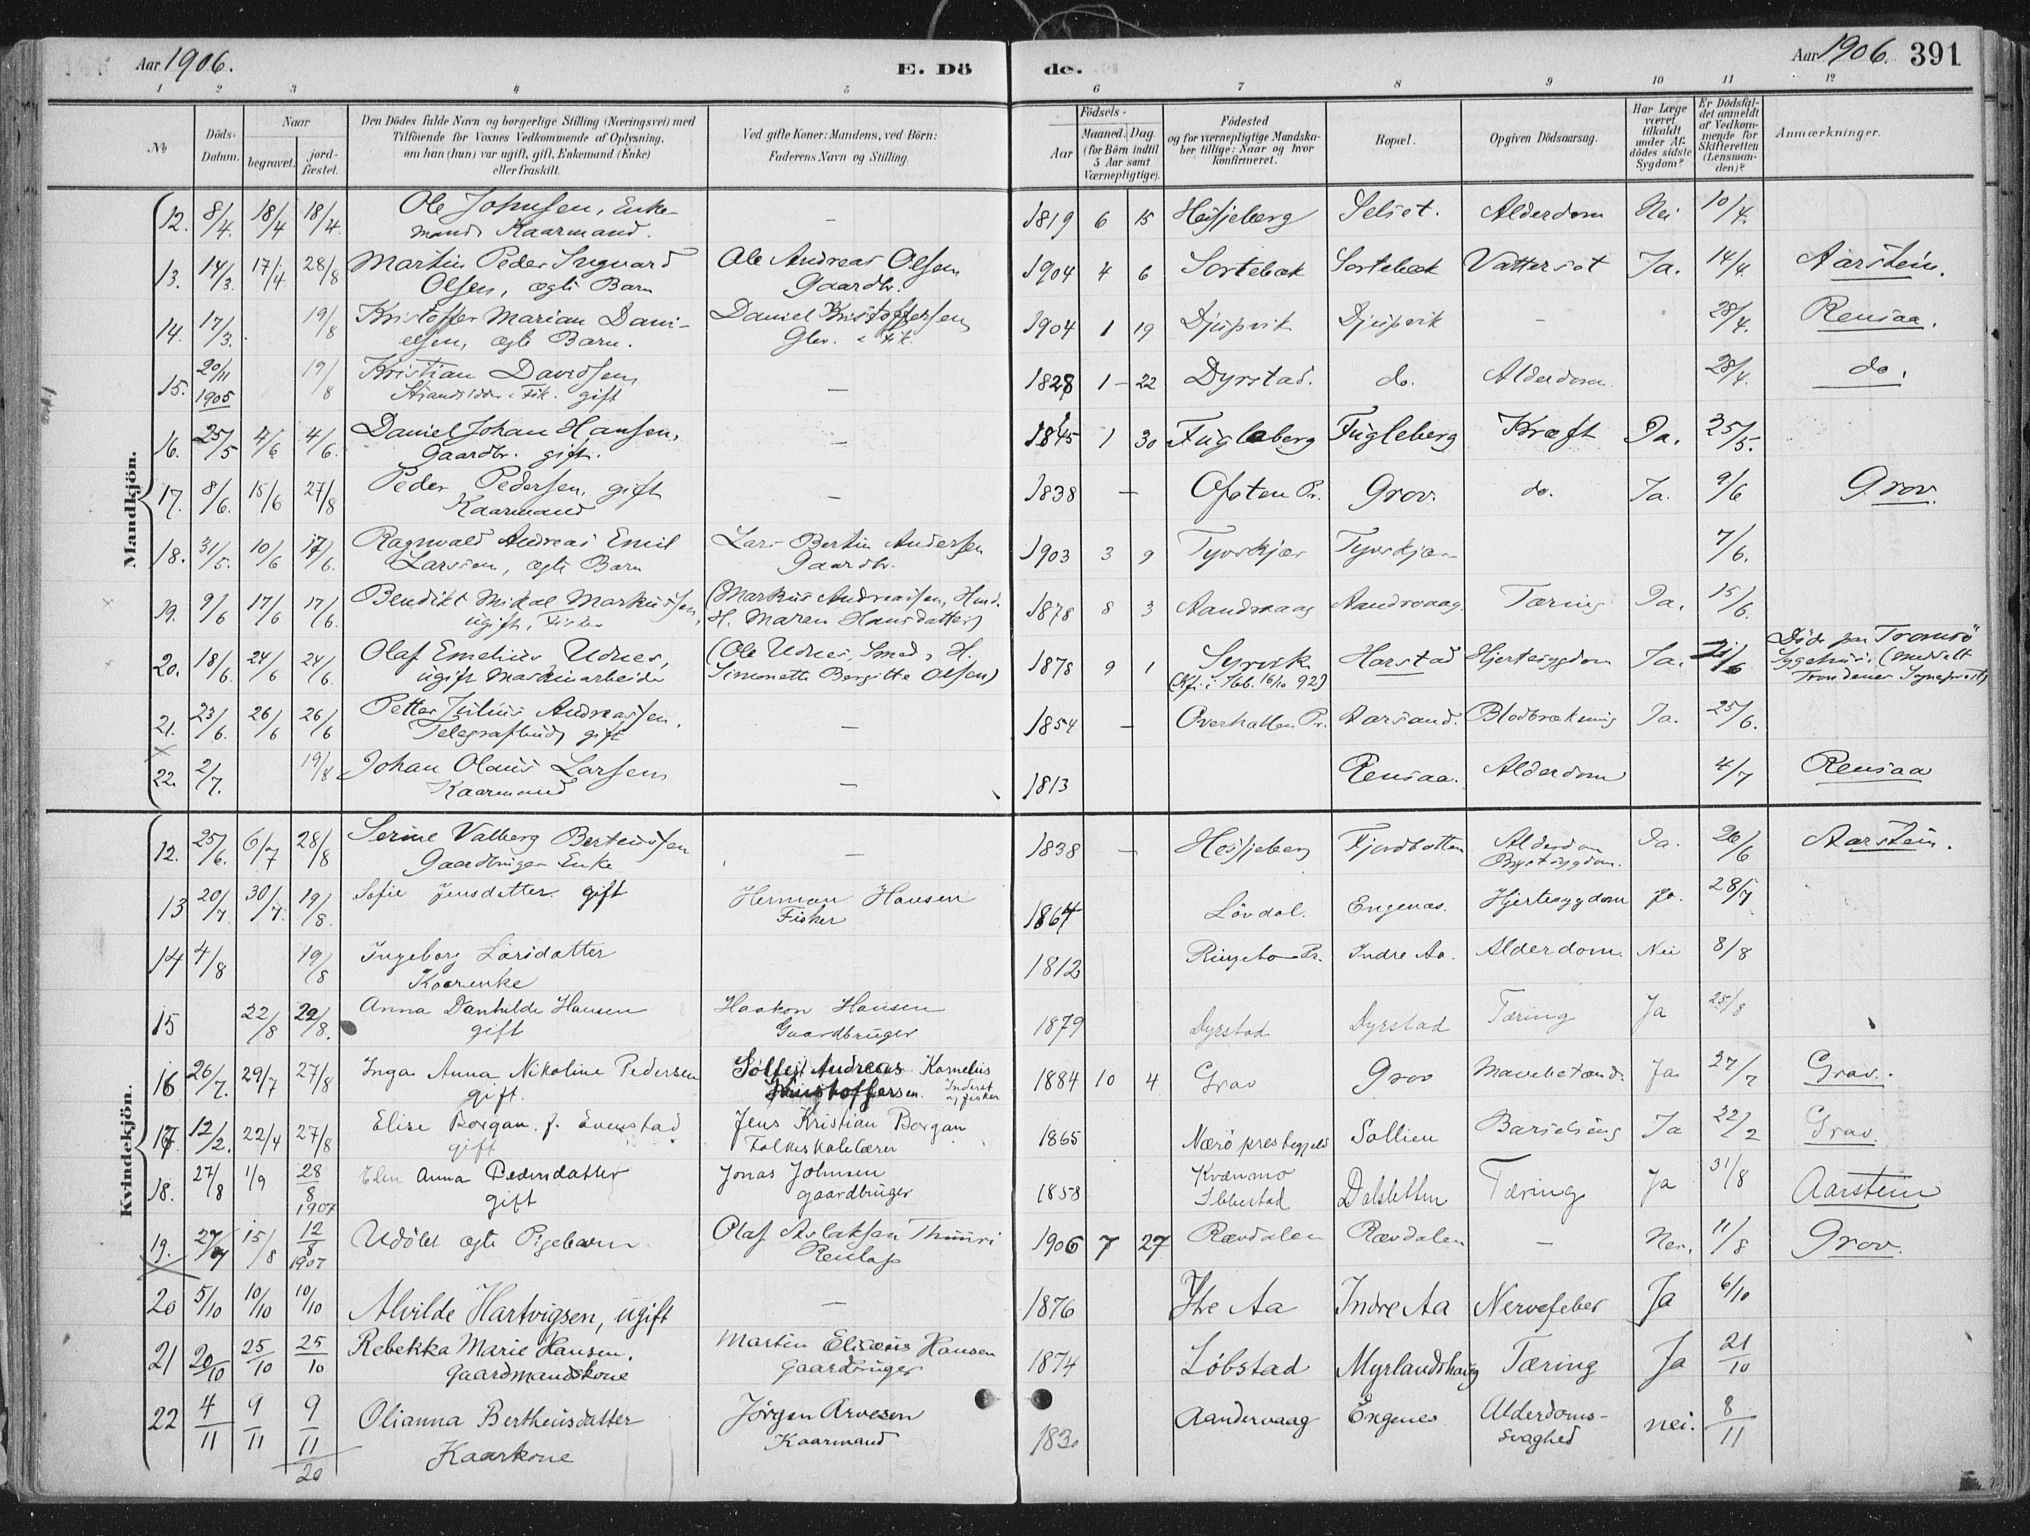 Aar 1906.
E. Dö
de.
Aar 1906. 391
1 2 3 4 5 6 7 8 9 10 11 12
No
Döds-Datum.
Naar
begravet.
jord-fæstet.
Den Dödes fulde Navn og borgerlige Stilling (Næringsvei) med
Tilföiende for Voxnes Vedkommende af Oplysning,
om han (hun) var ugift, gift, Enkemand (Enke)
eller fraskilt.
Ved gifte Koner: Mandens, ved Börn:
Faderens Navn og Stilling.
Födsels-
Aar
Maaned. Dag
(for Börn indtil
5 Aar samt
Værnepligtige).
Födested
og for værnepligtige Mandska-
ber tillige: Naar og hvor
konfirmeret.
Bopæl.
Opgiven Dödsaarsag.
Har Læge
været
tilkaldt
under Af-
dödes sidste
Sygdom?
Er Dödsfal-
det anmeldt
af Vedkom-
mende for
Skifteretten
(Lensman-
den)?
Anmærkninger.
Mandkjön.
12. 8/4. 18/4 18/4. Ole Johnsen, Enke- — 1819 6 15 Hesjeberg Selset. Alderdom Nei 10/4.
mand Kaarmand.
13. 14/3. 17/4 28/8 Martin Peder Ingvard Ole Andreas Olsen 1904 4 6 Sortebæk Sortebæk Vattersot Ja. 14/4. Aarstein.
Olsen, ægte Barn Gaardbr.
14. 17/3. 19/8 Kristoffer Marian Dani- Daniel Kristoffersen 1904 1 19 Djupvik Djupvik — 28/4. Rensaa.
elsen, ægte Barn.
15. 20/11 1905 19/8 Kristian Davidsen — 1828 1 22 Dyrstad. do. Alderdom 28/4. do.
gift
16. 25/5 4/6 4/6. Daniel Johan Hansen, — 1845 1 30 Fugleberg Fugleberg Kræft Ja. 25/5.
Gaardbr. gift.
17. 8/6. 15/6 27/8 Peder Pedersen, gift — 1838 — Ofoten Pr. Grov. do. Ja. 9/6 Grov.
Kaarmand
18. 31/5. 10/6 17/6. Ragnvald Andreas Emil Lars Bertin Andersen 1903 3 9 Tyvskjær Tyvskjær 7/6.
Larsen, ægte Barn Gaardbr.
19. 9/6 17/6 17/6. Bendikt Mikal Markussen, (Markus Andreassen, Hmd. 1878 8 3 Aandvaag Aandvaag Tæring Ja. 15/6.
ugift, Fisker H. Maren Hansdatter)
20. 18/6. 24/6 24/6. Olaf Emelius Udnes, (Ole Udnes, Smed, H. 1878 9 1 Syrvik Harstad Hjertesygdom Ja. 21/6 Döde paa Tromsö
ugift Maskinarbeider Simonette Bergitte Olsen) (Kfi. i Ibb. 16/10 92) Sygehus. (meddelt
Trondenes Sogneprest)
21. 23/6. 26/6 26/6 Petter Julius Andreassen. — 1854 — Overhallen Pr. Aarsand. Blodbrækning Ja. 25/6.
Telegrafbud, gift
22. 2/7. 19/8 Johan Olaus Larsen — 1813 Rensaa. Alderdom 4/7 Rensaa
Kaarmand
Kvindekjön.
12. 25/6. 6/7 28/8 Serine Valberg Berteussen — 1838 — Hesjeberg Fjordbotten Alderdom Ja. 26/6 Aarstein.
Gaardbruger Enke Brystsygdom.
13 20/7. 30/7. 19/8. Sofie Jensdatter gift Herman Hansen 1864 Lövdal. Engenæs. Hjertesygdom Ja. 28/7
Fisker
14 4/8 19/8 Ingeborg Larsdatter 1812 Ringebo Pr. Indre Aa. Alderdom. Nei 8/8
Kaarenke
15 22/8 22/8. Anna Danhilde Hansen Haakon Hansen 1879 Dyrstad Dyrstad Tæring Ja 25/8
gift Gaardbruger
16 26/7. 29/7 27/8 Inga Anna Nikoline Pedersen Sölfest Andreas Kornelius 1884 10 4 Grav Grov Mavebetænd. Ja 27/7 Grav.
gift. Kristoffersen. Inderst og fisker
17 12/2. 22/4 27/8 Elise Borgan f. Evenstad Jens Kristian Borgan 1865 Nærö prestegjeld Sollien Barselseng Ja 22/2 Grav.
gift Folkeskolelærer
18. 27/8 1/9 28/8 1907 Elen Anna Pedersdatter Jonas Johnsen 1853 Kvænmo Dalsletten Tæring Ja 31/8 Aarstein
gift gaardbruger Ibbestad
19. 27/7 15/8 12/8 1907 Udöbt ægte Pigebarn Olaf Aslaksen Thuuri 1906 7 27 Rævdalen Rævdalen — Nei. 11/8 Grov.
Renlap
20 5/10 10/10 10/10 Alvilde Hartvigsen, ugift — 1876 Ytre Aa Indre Aa Nervefeber Ja 6/10
21 20/10 25/10 25/10 Rebekka Marie Hansen. Martin Elisæus Hansen 1874 Löbstad Myrlandshaug Tæring Ja 21/10
Gaardmandskone gaardbruger
22 4/11 9/11 9/11 Olianna Bertheusdatter Jörgen Arvesen 1830 Aandervaag Engenes Alderdoms- nei. 8/11
Kaarkone Kaarmand svaghed
20